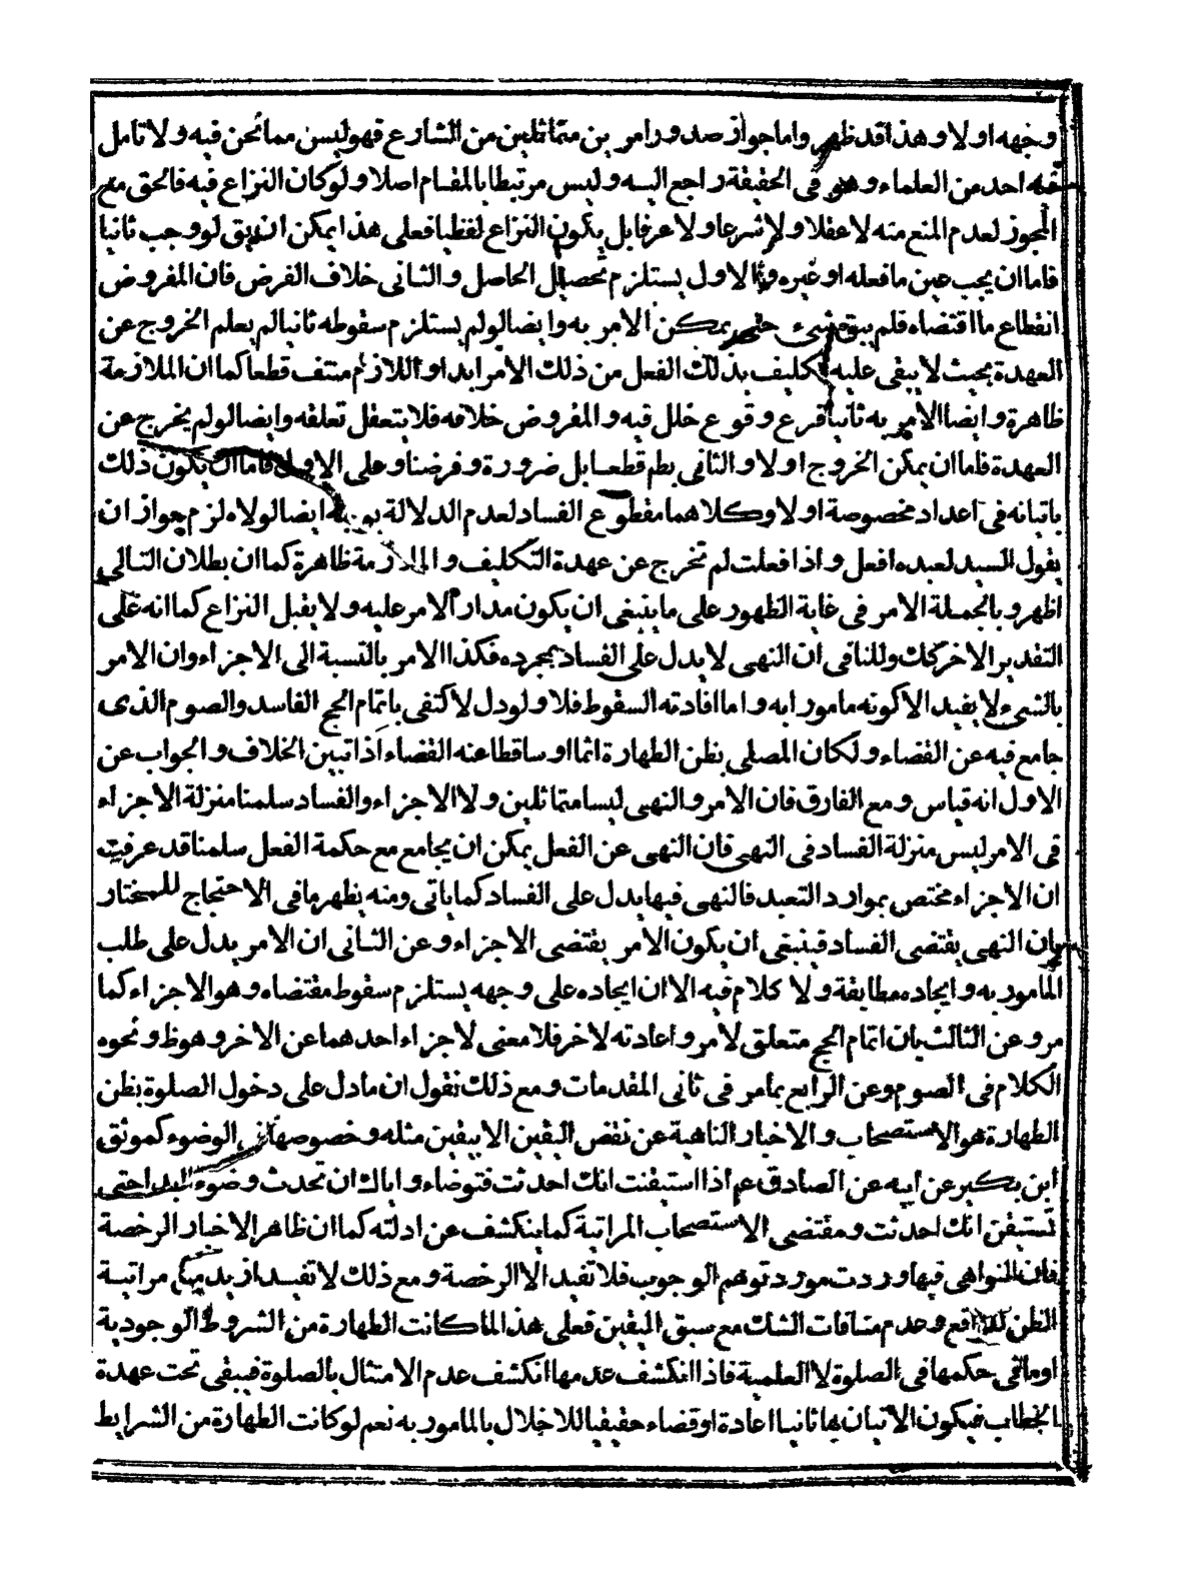 وجهه اولا وهذا قد ظهر واما جواز صدور امرين متماثلين من الشارع فهو ليس مما نحن فيه ولا تامل
فيه احد من العلماء وهو فى الحقيقة راجع اليه وليس مرتبطا بالمقام اصلا ولو كان النزاع فيه فالحق مع
المجوز لعدم المنع منه لا عقلا ولا شرعا ولا عرفا بل يكون النزاع لفظيا فعلى هذا يمكن ان يق لو وجب ثانيا
فاما ان يجب عين ما فعله او غيره والاول يستلزم تحصيل الحاصل والثانى خلاف الفرض فان المفروض
انقطاع ما اقتضاه فلم يبق شىء حتى يمكن الامر به وايضا لو لم يستلزم سقوطه ثانيا لم يعلم الخروج عن
العهدة بحيث لا يبقى عليه تكليف بذلك الفعل من ذلك الامر ابدا واللازم منتف قطعا كما ان الملازمة
ظاهرة وايضا الامر به ثانيا فرع وقوع خلل فيه والمفروض خلافه فلا يتعقل تعلقه وايضا لو لم يخرج عن
العهدة فاما ان يمكن الخروج اولا والثانى بط قطعا بل ضرورة وفرضنا وعلى الاول فاما ان يكون ذلك
باتيانه فى اعداد مخصوصة اولا وكلاهما مقطوع الفساد لعدم الدلالة ايضا لولاه لزم جواز ان
يقول السيد لعبده افعل واذا فعلت لم تخرج عن عهدة التكليف والملازمة ظاهرة كما ان بطلان التالى
اظهر وبالجملة الامر فى غاية الظهور على ما ينبغى ان يكون مدار الامر عليه ولا يقبل النزاع كما انه على
التقدير الاخر كك وللنافى ان النهى لا يدل على الفساد بمجرده فكذا الامر بالنسبة الى الاجزاء وان الامر
بالشىء لا يفيد الا كونه مامورا به واما افادته السقوط فلا ولو دل لاكتفى باتمام الحج الفاسد والصوم الذى
جامع فيه عن القضاء ولكان المصلى بظن الطهارة اثما او ساقطا عنه القضاء اذا تبين الخلاف والجواب عن
الاول انه قياس ومع الفارق فان الامر والنهى ليسا متماثلين ولا الاجزاء والفساد سلمنا منزلة الاجزاء
فى الامر ليس منزلة الفساد فى النهى فان النهى عن الفعل يمكن ان يجامع مع حكمة الفعل سلمنا قد عرفت
ان الاجزاء مختص بموارد التعبد فالنهى فيها يدل على الفساد كما ياتى ومنه يظهر ما فى الاحتجاج للمختار
بان النهى يقتضى الفساد فينبغى ان يكون الامر يقتضى الاجزاء وعن الثانى ان الامر يدل على طلب
المامور به وايجاده مطابقة ولا كلام فيه الا ان ايجاده على وجهه يستلزم سقوط مقتضاه وهو الاجزاء كما
مر وعن الثالث بان اتمام الحج متعلق لامر واعادته لاخر فلا معنى لاجزاء احدهما عن الاخر وهو ظ ونحوه
الكلام فى الصوم وعن الرابع بما مر فى ثانى المقدمات ومع ذلك نقول ان ما دل على دخول الصلوة بظن
الطهارة هو الاستصحاب والاخبار الناهية عن نقض اليقين الا بيقين مثله وخصوصها فى الوضوء كموثق
ابن بكير عن ابيه عن الصادق ع اذا استيقنت انك احدثت فتوضاء واياك ان تحدث وضوء ابدا حتى
تستيقن انك احدثت ومقتضى الاستصحاب المراتبة كما ينكشف عن ادلته كما ان ظاهر الاخبار الرخصة
فان النواهى فيها وردت مورد توهم الوجوب فلا تفيد الا الرخصة ومع ذلك لا تفيد ازيد من مراتبة
الظن للواقع وعدم منافات الشك مع سبق اليقين فعلى هذا لما كانت الطهارة من الشروط الوجودية
او ما فى حكمها فى الصلوة لا العلمية فاذا انكشف عدمها انكشف عدم الامتثال بالصلوة فيبقى تحت عهدة
الخطاب فيكون الاتيان بها ثانيا اعادة او قضاء حقيقيا للاخلال بالمامور به نعم لو كانت الطهارة من الشرايط